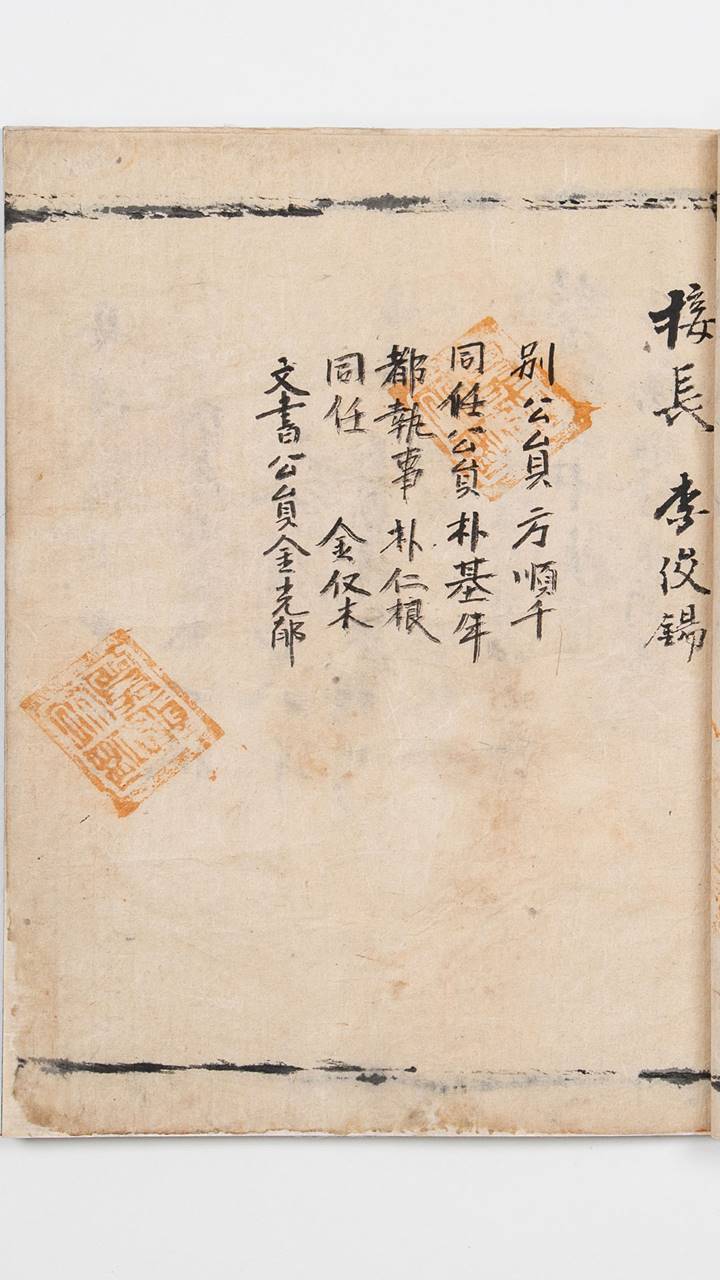 接長 李俊錫
別公員 方順千
同任公員 朴基年
都執事 朴仁根
同任 金仅木
文書公員 金光郁